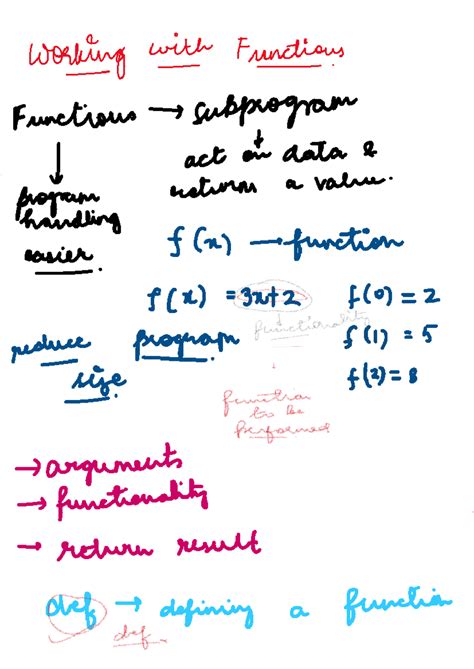 Working with Functions
Functions → subprogram
↓ ↓
program act on data &
handling returns a value.
easier.
f(x) → function
f(x) = 3x+2 f(0) = 2
functionality
reduce program f(1) = 5
size f(2) = 8
function
to be
performed
→ arguments
→ functionality
→ return result
def → defining a function
def.